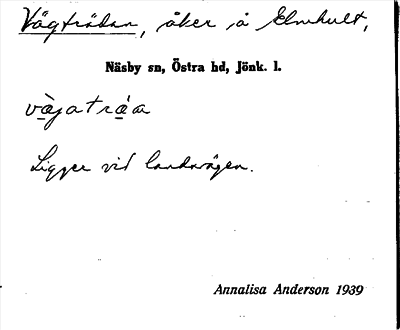 Vägträdan, åker å Elmhult,
Näsby sn, Östra hd, Jönk. l.
vä̀gatrá̤a
Ligger vid landsvägen.
Annalisa Anderson 1939